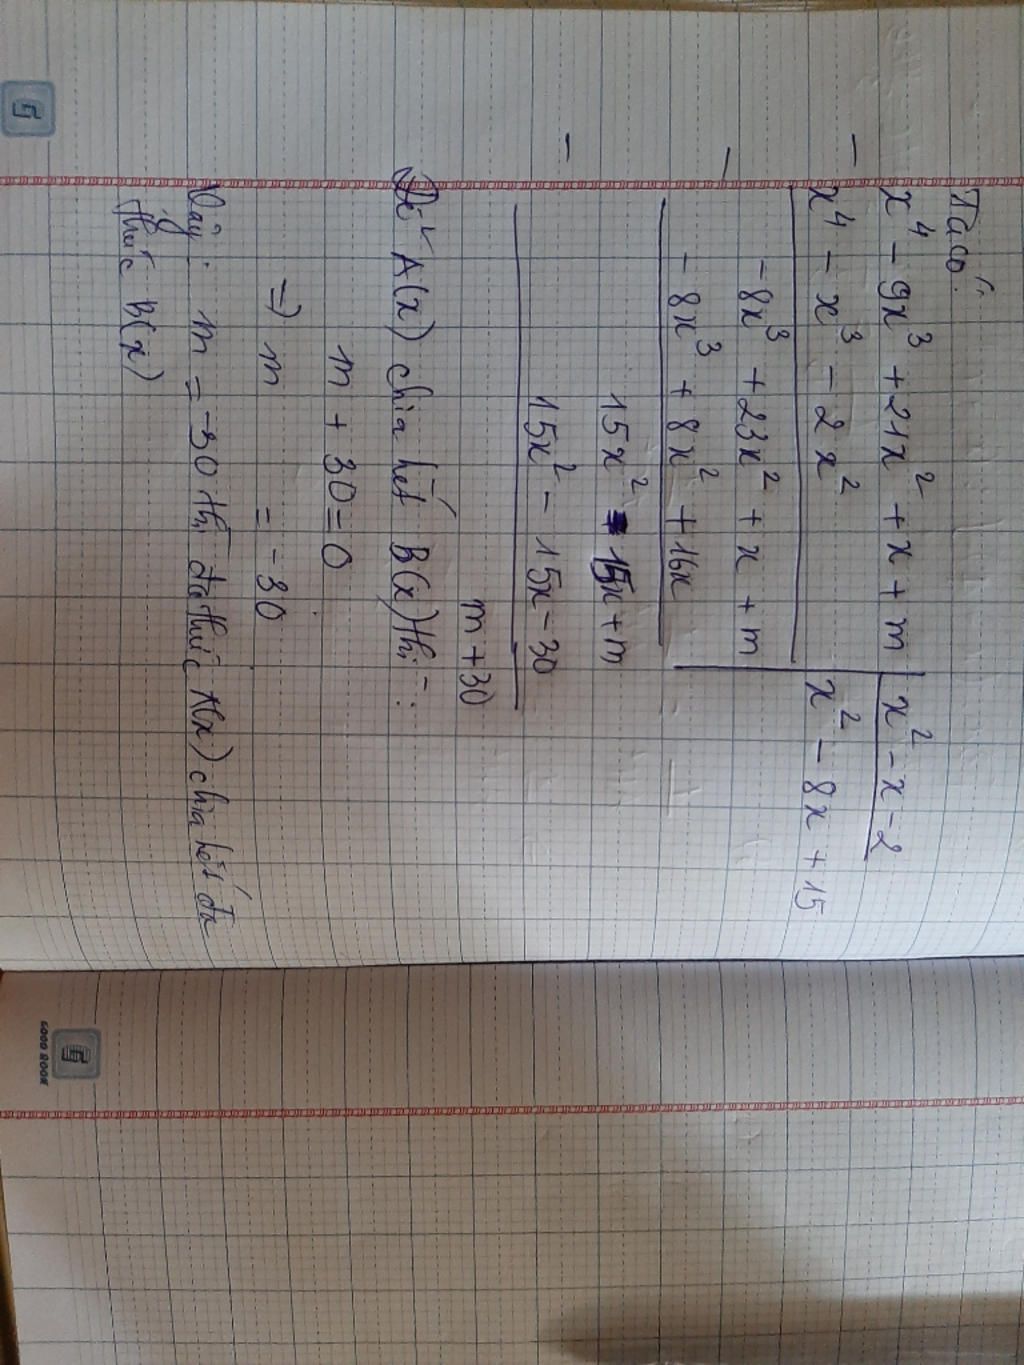 Ta có:
x⁴ - 9x³ + 21x² + x + m | x² - x - 2
-
x⁴ - x³ - 2x² | x² - 8x + 15
- 8x³ + 23x² + x + m
-
- 8x³ + 8x² + 16x
15x² - 15x + m
-
15x² - 15x - 30
m + 30
Để A(x) chia hết B(x) thì:
m + 30 = 0
=> m = -30
Vậy: m = -30 thì đa thức A(x) chia hết đa
thức B(x)
G
G
GOOD BOOK